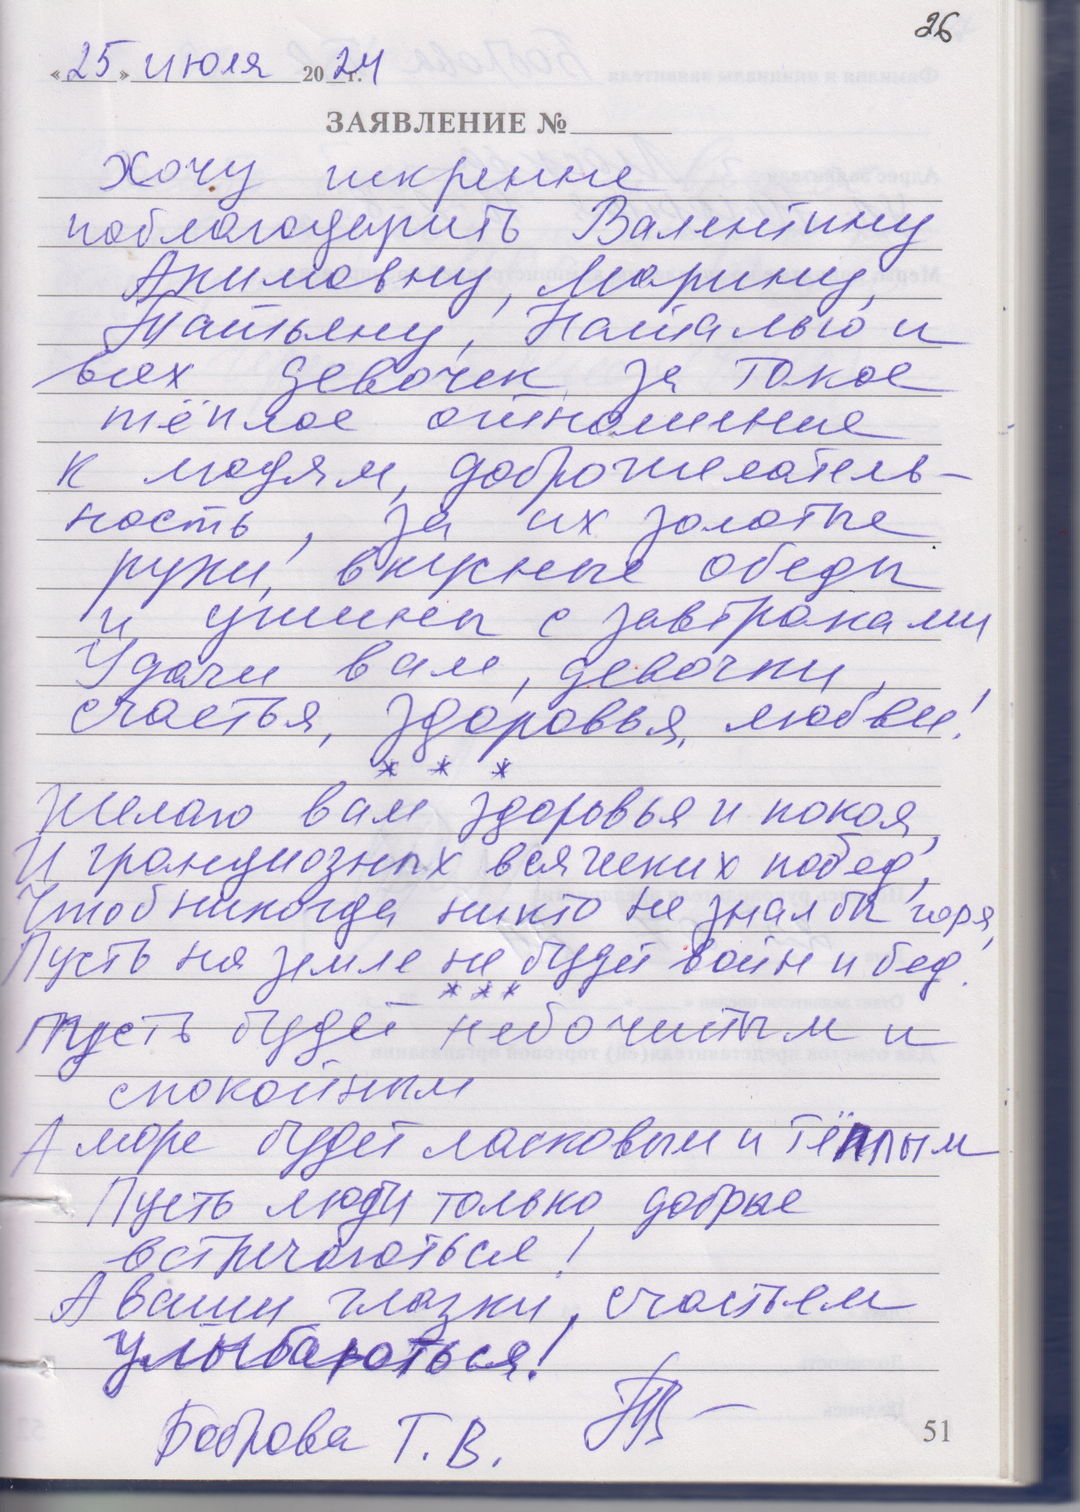 26
«25» июля 2024 г.
ЗАЯВЛЕНИЕ №
Хочу искренне
поблагодарить Валентину
Акимовну, Марину,
Татьяну, Наталью и
всех девочек за такое
тёплое отношение
к людям, доброжелатель-
ность, за их золотые
руки, вкусные обеды
и ужины с завтраками
Удачи вам, девочки,
счастья, здоровья, любви!
* * *
Желаю вам здоровья и покоя,
И грандиозных всяческих побед,
Чтоб никогда никто не знал бы горя,
Пусть на земле не будет войн и бед.
* * *
Пусть будет небо чистым и
спокойным
А море будет ласковым и тёплым
Пусть люди только добрые
встречаются!
А ваши глазки, счастьем
улыбаются!
Боброва Т. В.
51